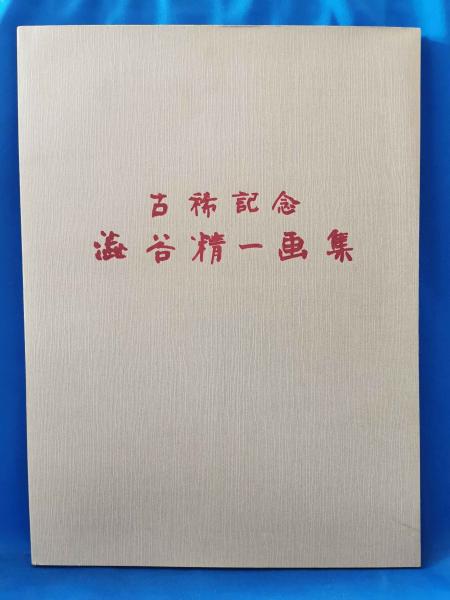 古稀記念
澁谷精一画集